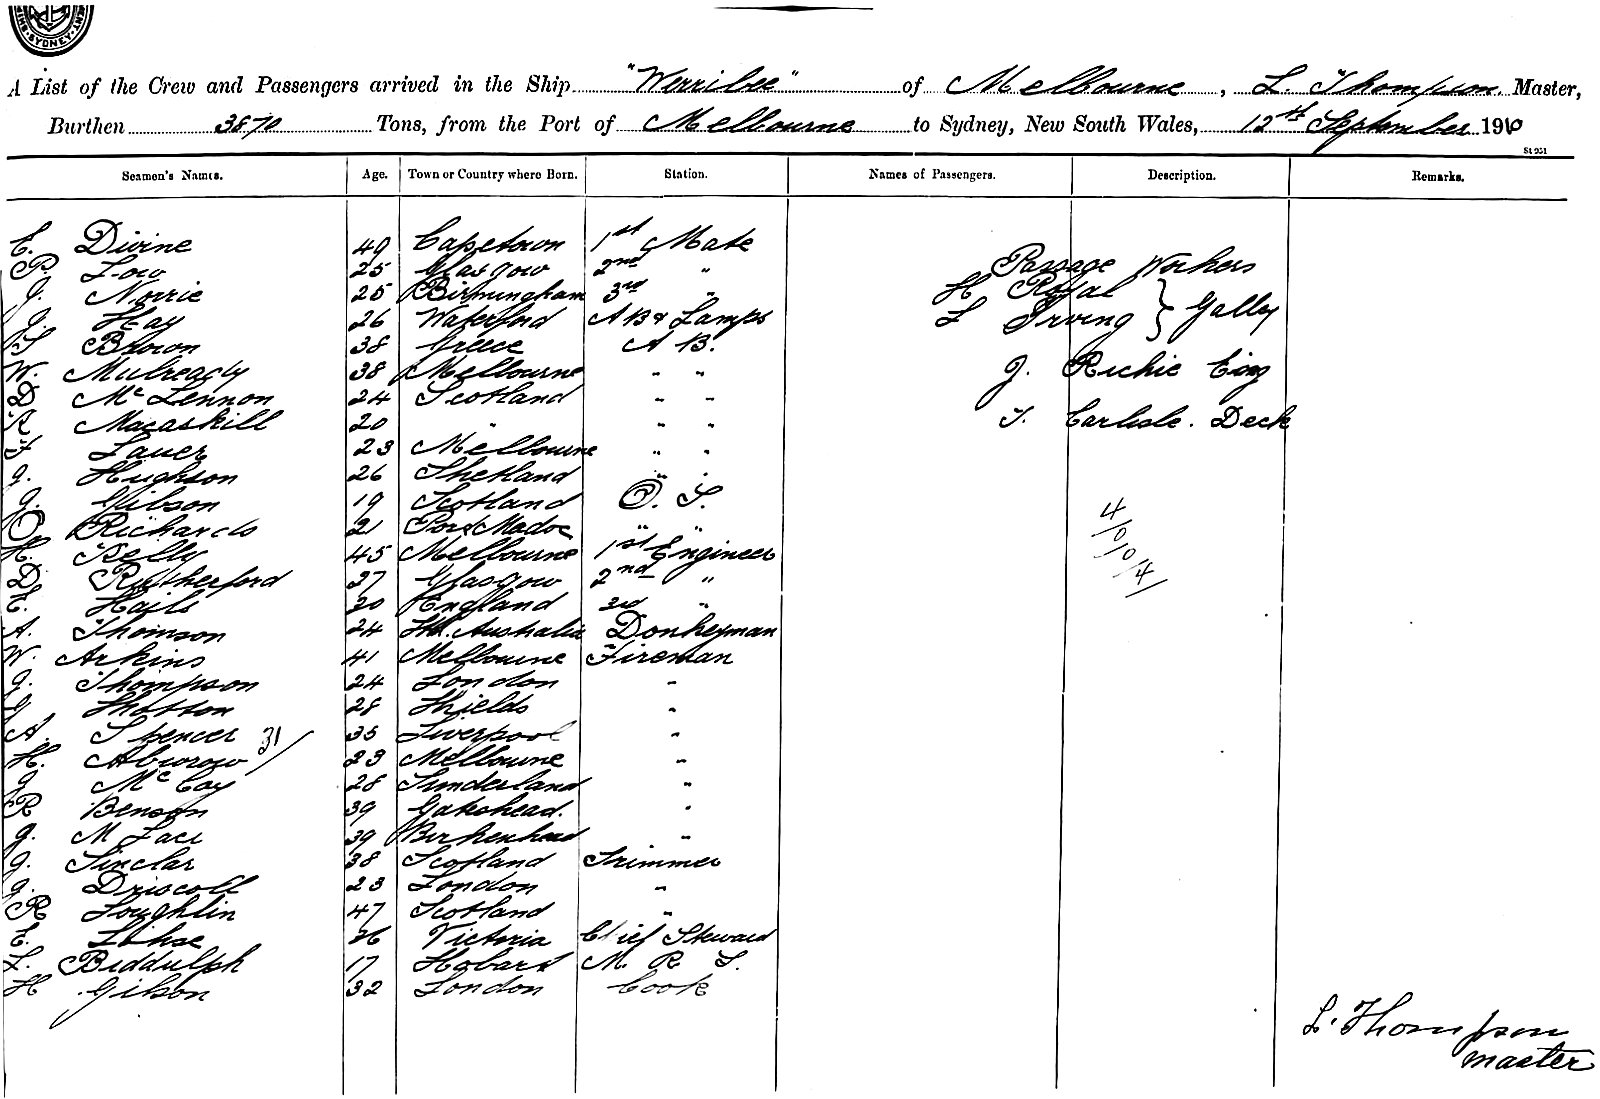 SYDNEY
A List of the Crew and Passengers arrived in the Ship "Werribee" of Melbourne, L. Thompson, Master,
Burthen 3870 Tons, from the Port of Melbourne to Sydney, New South Wales, 12th September 1910
St 951
Seamen's Names. Age. Town or Country where Born. Station. Names of Passengers. Description. Remarks.
E. Divine 49 Capetown 1st Mate
P. Low 25 Glasgow 2nd " Passage Workers
J. Norrie 25 Birmingham 3rd " H Royal
J Hay 26 Waterford AB & Lamps L Irving } Galley
S Brown 38 Greece A B.
W. Mulready 38 Melbourne " " J. Richie Eng
D McLennon 24 Scotland " "
R Macaskill 20 " " " T. Carlisle. Deck
F Lauer 23 Melbourne " "
J. Hughson 26 Shetland " "
J. Gibson 19 Scotland O. S.
O Richards 21 Port Madoc " "
H. Kelly 45 Melbourne 1st Engineer
D Rutherford 27 Glasgow 2nd "
E. Hails 30 England 3rd "
A. Thomson 24 Sth. Australia Donkeyman
W. Arkins 41 Melbourne Fireman
J. Thompson 24 London "
J Shotton 28 Shields "
A. Spencer 35 Liverpool "
31/
H. Aburrow 23 Melbourne "
J McCay 28 Sunderland "
R Benson 39 Gateshead. "
J. M Face 39 Birkenhead "
J. Sinclar 38 Scotland Trimmer
J. Driscoll 23 London "
R Loughlin 47 Scotland "
E. Lohse 26 Victoria Chief Steward
L. Biddulph 17 Hobart M. R. S.
H Gibson 32 London Cook
4/0/0/4/
L. Thompson
master